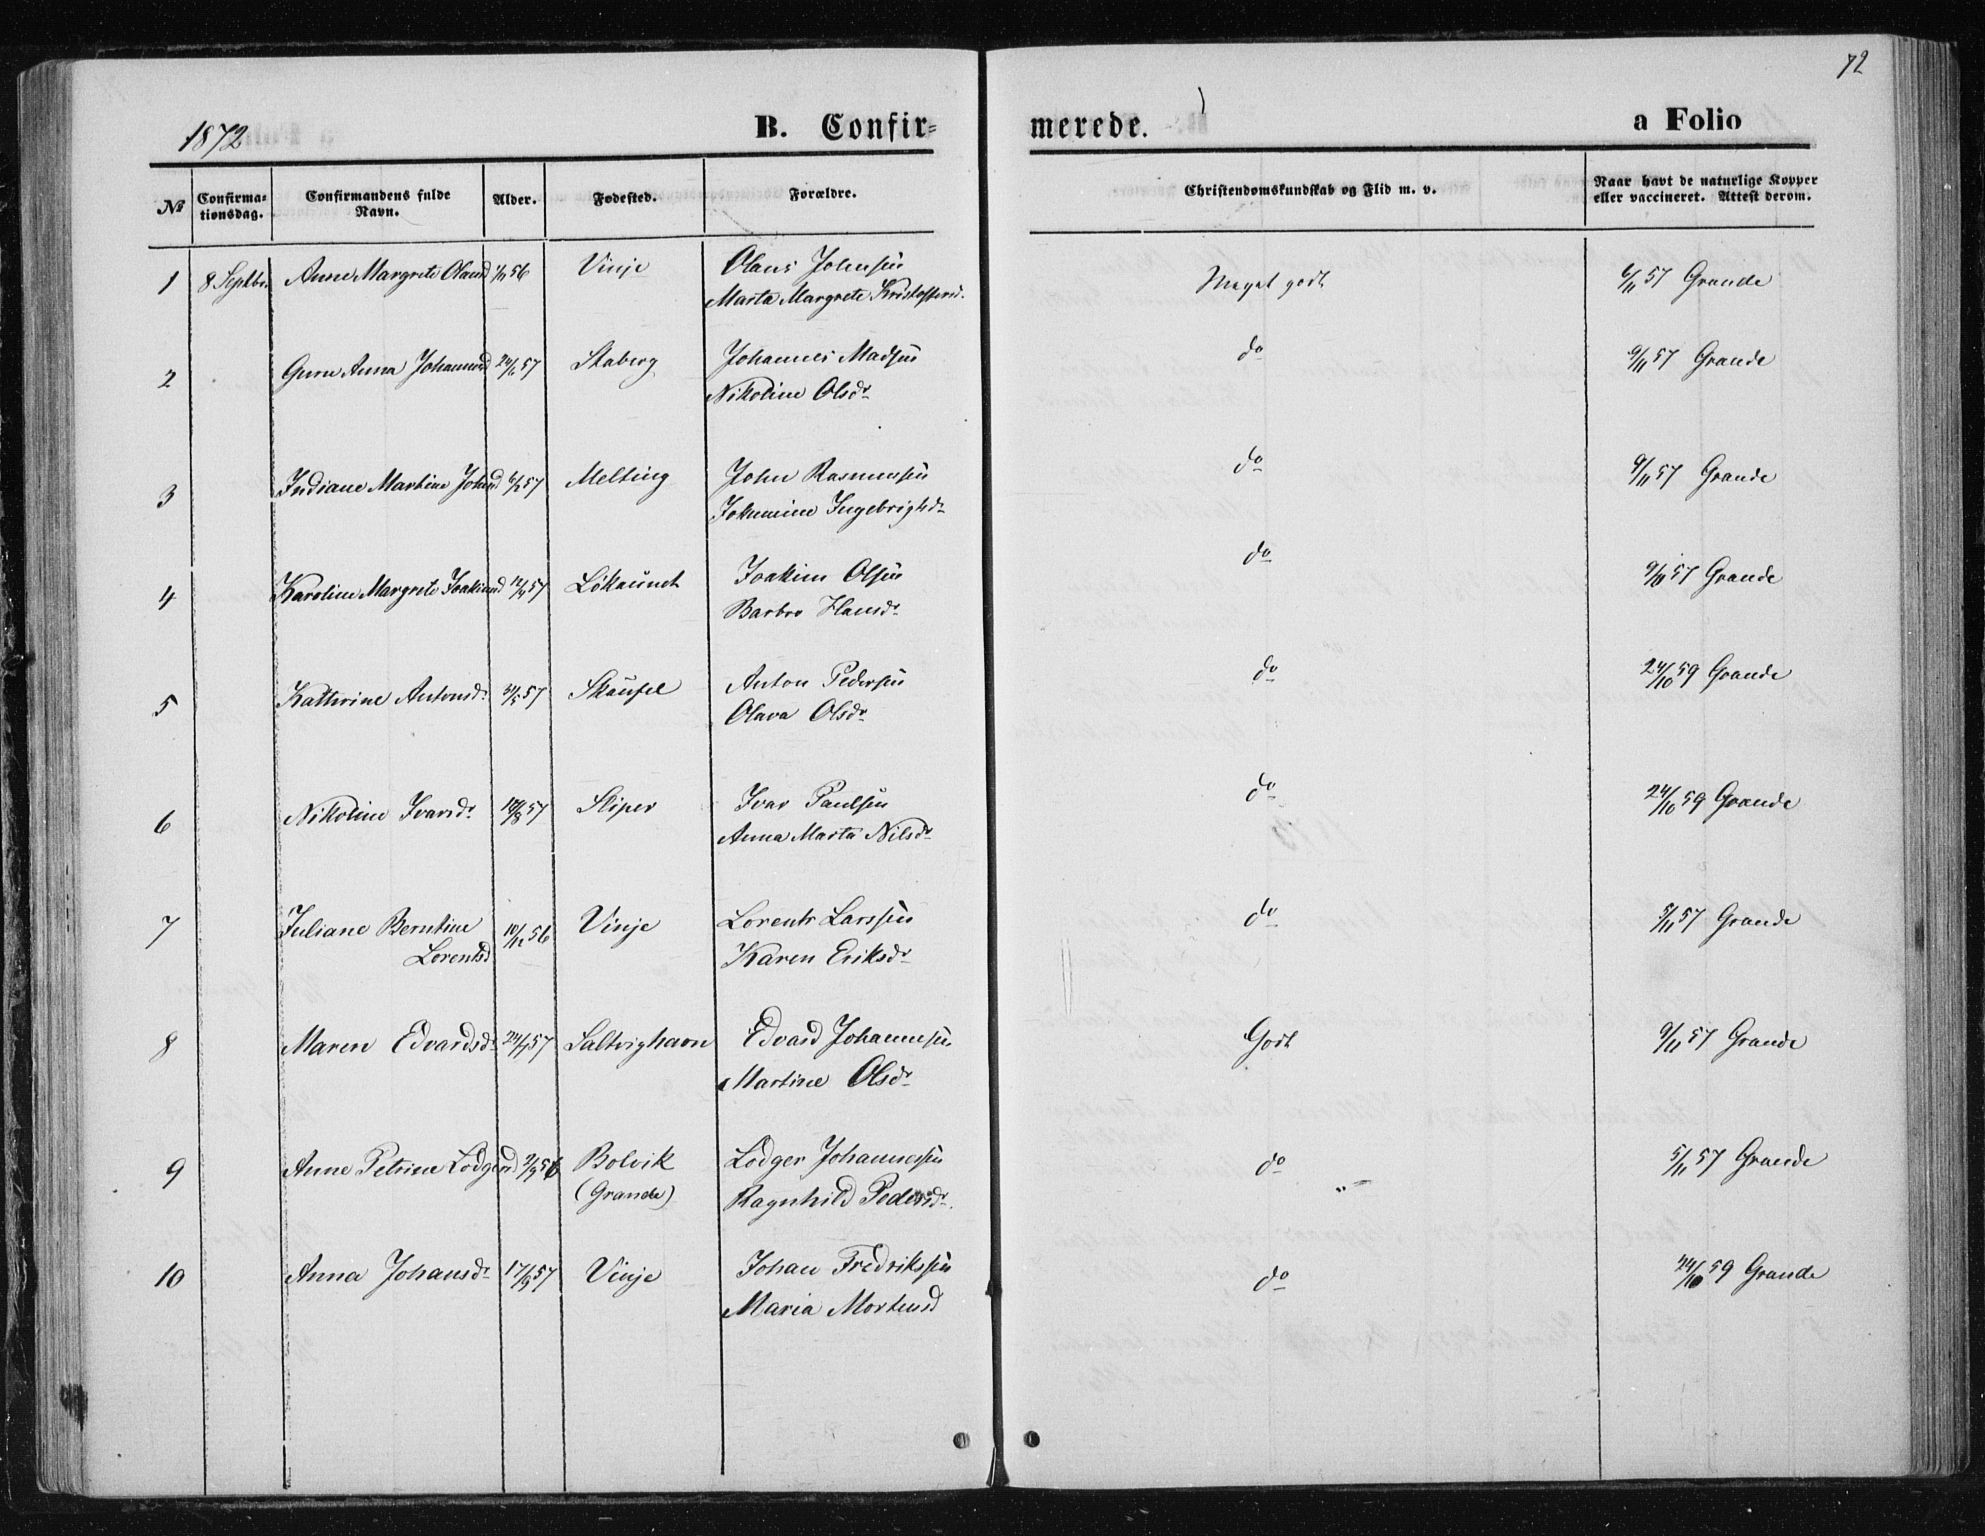 72
1872 B. Confir= merede. a Folio
No Confirma-tionsdag. Confirmandens fulde Navn. Alder. Fødested. Forældre. Christendomskundskab og Flid m. v. Naar havt de naturlige Kopper eller vaccineret. Attest derom.
1 8 Septbr Anne Margrete Olausd 56 Vinje Olaus Johnsen Meget godt 6/11 57 Grande
Marta Margrete Kristoffersd.
2 Gurn Anna Johannesd 24/6 57 Staberg Johannes Madsen do 9/11 57 Grande
Nikoline Olsdr
3 Indiane Martine Johnsd 6/2 57 Melting John Rasmussen do 9/11 57 Grande
Johannine Ingebrigtsdr
4 Karoline Margrete Joakimsd 12/4 57 Løkaunet Joakim Olsen do 9/11 57 Grande
Barbro Hansdr
5 Kathrine Antonsdr 31/5 57 Skaufel Anton Pedersen do 24/10 59 Grande
Olava Olsdr
6 Nikoline Ivarsdr 18/8 57 Sliper Ivar Paulsen do 24/10 59 Grande
Anna Marta Nilsdr
7 Juliane Berntine 10/12 56 Vinje Lorents Larssen do 5/11 57 Grande
Lorentsd Karen Eriksdr
8 Maren Edvardsdr 24/7 57 Saltvighavn Edvard Johannesen Godt 9/11 57 Grande
Martine Olsdr
9 Anne Petrine Lodgersd 2/9 56 Bolvik Lodger Johannessen do 5/11 57 Grande
(Grande) Ragnhild Pedersdr
10 Anna Johansdr 17/9 57 Vinje Johan Fredrikssen do 24/10 59 Grande
Maria Mortensd